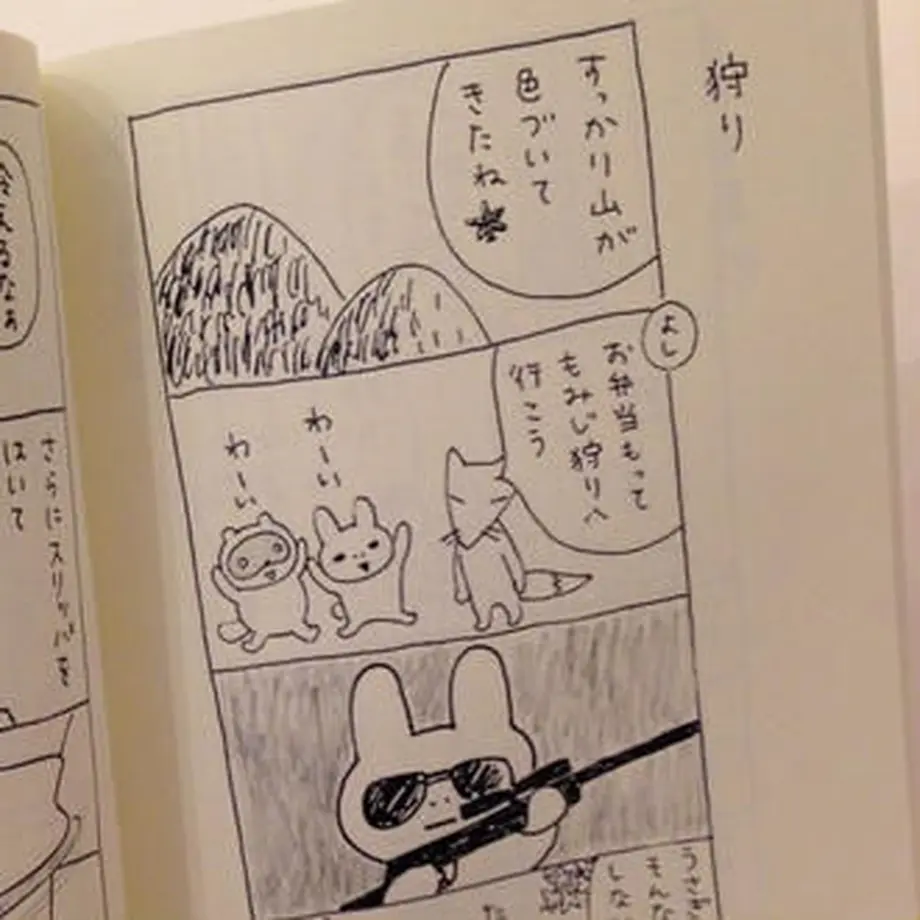 狩り
すっかり山が
色づいて
きたね
よし
お弁当もって
もみじ狩りへ
行こう
わーい
わーい
うさぎ
そんな
しない
た
さらにスリッパを
はいて